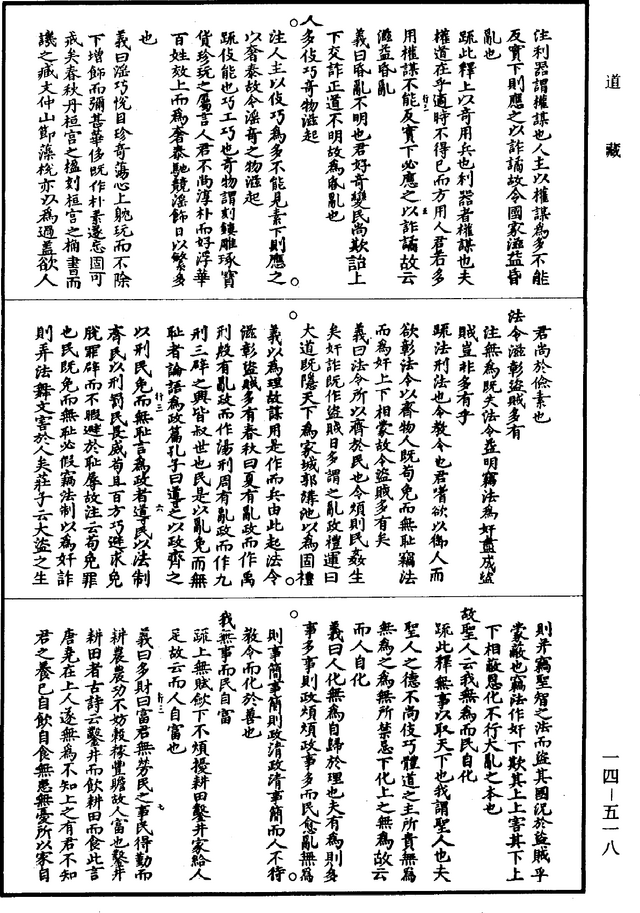 道藏
注利器謂權謀也人主以權謀為多不能
反實下則應之以詐譎故令國家滋益昏
亂也
疏此釋上以奇用兵也利器者權謀也夫
權道在乎適時不得已而方用人君若多
用權謀不能反實下必應之以詐譎故云
滋益昏亂
義曰昏亂不明也君好奇變民尚欺詒上
下交詐正道不明故為昏亂也
人多伎巧奇物滋起
注人主以伎巧為多不能見素下則應之
以奢泰故令淫奇之物滋起
疏伎能也巧工巧也奇物謂刻鏤雕琢寶
貨珍玩之屬言人君不尚淳朴而好浮華
百姓效上而為奢泰馳競淫飾日以繁多
也
義曰淫巧悅目珍奇蕩心上躭玩而不除
下增飾而彌甚華侈既作朴素遂忘固可
戒矣春秋丹桓宮之楹刻桓宮之桷書而
譏之臧文仲山節藻梲亦以為過蓋欲人
君尚於儉素也
法令滋彰盜賊多有
注無為既失法令益明竊法為奸盡成盜
賊豈非多有乎
疏法刑法也令教令也君嗜欲以御人而
欲彰法令以齊物人既苟免而無恥竊法
而為奸上下相蒙故令盜賊多有矣
義曰法令所以齊於民也令煩則民姦生
矣奸詐既作盜賊日多謂之亂政禮運曰
大道既隱天下為家城郭溝池以為固禮
義以為理故謀用是作而兵由此起法令
滋彰盜賊多有春秋曰夏有亂政而作禹
刑殷有亂政而作湯刑周有亂政而作九
刑三辟之興皆叔世也民是以亂免而無
恥者論語為政篇孔子曰道之以政齊之
以刑民免而無恥言為政者導民以法制
齊民以刑罰民畏威苟且百方巧避求免
脫罪辟而不暇避於恥辱故注云苟免罪
也民既免而無恥必假竊法制以為奸詐
則弄法舞文害於人矣莊子云大盜之生
則并竊聖智之法而盜其國況於盜賊乎
蒙蔽也竊法作奸下欺其上上害其下上
下相蔽恩化不行大亂之本也
故聖人云我無為而民自化
疏此釋無事以取天下也我謂聖人也夫
聖人之德不尚伎巧體道之主所貴無為
無為之為無所禁忌下化上之無為故云
而人自化
義曰人化無為自歸於理也夫有為則多
事多事則政煩煩政事多而民愈亂無為
則事簡事簡則政清政清事簡而人不待
教令而化於善也
我無事而民自富
疏上無賦歛下不煩擾耕田鑿井家給人
足故云而人自富也
義曰多財曰富君無勞民之事民得勤而
耕農農功不妨稼穡豐贍故人富也鑿井
耕田者古詩云鑿井而飲耕田而食此言
唐堯在上人遂無為不知上之有君不知
君之養己自飲自食無患無憂所以家自
一四—五一八